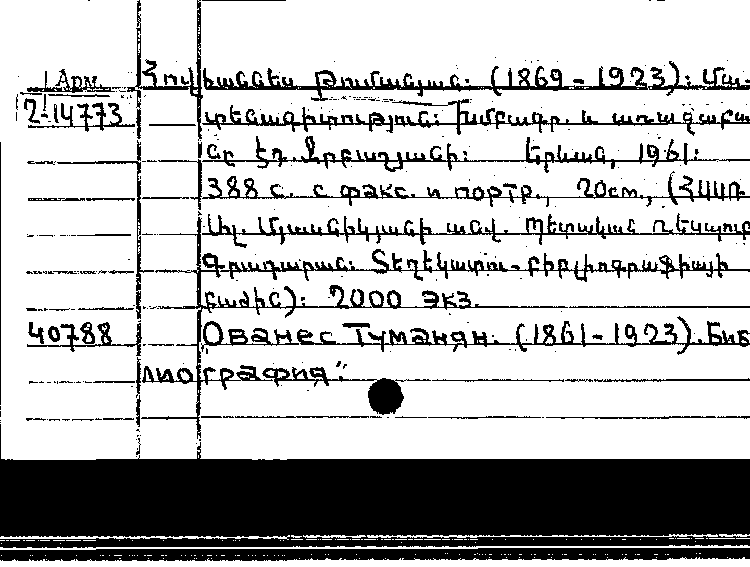 Арм. Հովհաննես Թումանյան: (1869-1923): Մա-
2-14773 տենագիտություն: Խմբագր. և առաջաբա
նը Էդ. Ջրբաշյանի: Երևան, 1961:
388 с. с факс. и портр., 20см., (ՀՍՍՌ
Ալ. Մյասնիկյանի անվ. Պետական
Գրադարան: Տեղեկատու-բիբլիոգրաֆիայի
բաժին): 2000 экз.
40788 "Ованес Туманян. (1861-1923). Биб
лиография".